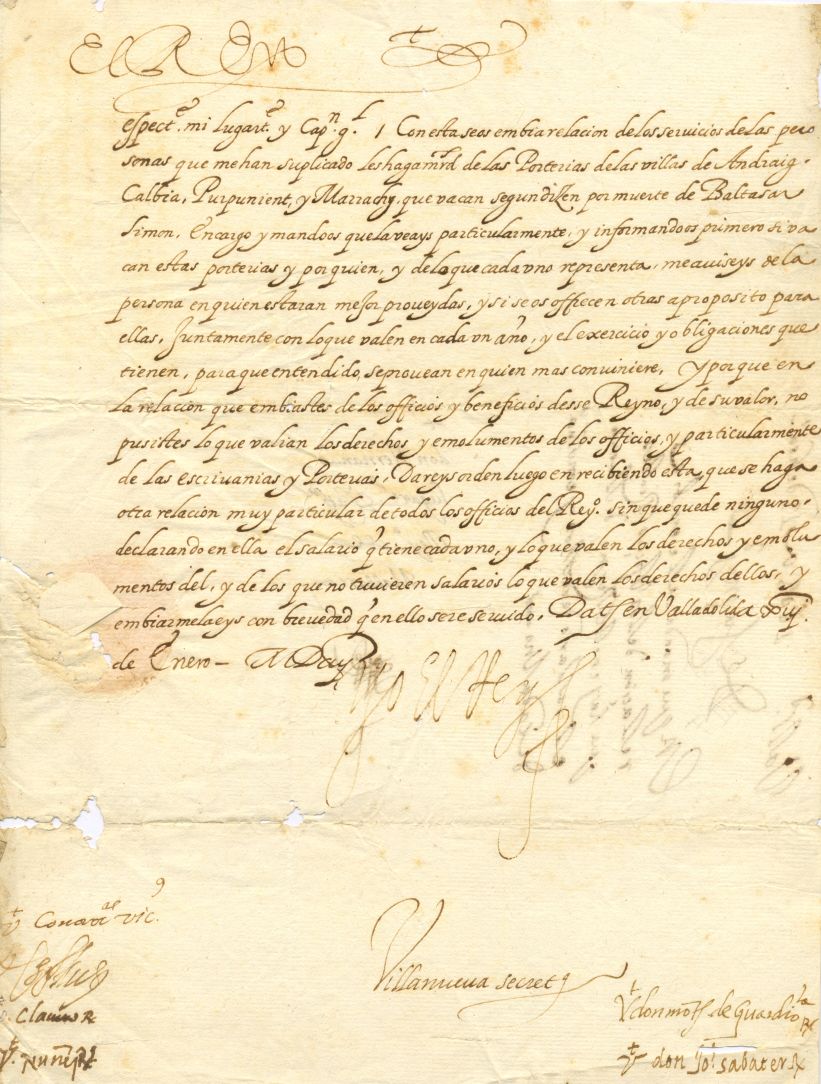 El Rey
espect.e mi lugart.e y Cap.n g.l / Con esta se os embia relacion de los servicios de las per
sonas que me han suplicado les haga mrd de las Porterias de las villas de Andraig,
Calbia, Purpunient, y Marrachy, que vacan segun dizen por muerte de Baltasar
Simon, Encargo y mandoos que la veays particularmente, y informandoos primero si va
can estas porterias y por quien, y de lo que cada vno representa, me aviseys de la
persona en quien estaran mejor proveydas, y si se os offrecen otras a proposito para
ellas, Juntamente con lo que valen en cada vn año, y el exercicio y obligaciones que
tienen, para que entendido, se provean en quien mas conviniere, Y porque en
la relacion que embiastes de los officios y beneficios desse Reyno, y de su valor, no
pusistes lo que valian los derechos y emolumentos de los officios, y particularmente
de las escrivanias y Porterias, Dareys orden luego en recibiendo esta, que se haga
otra relacion muy particular de todos los officios del Rey.o sin que quede ninguno,
declarando en ella el salario q tiene cada vno, y lo que valen los derechos y emolu
mentos del, y de los que no tuvieren salarios lo que valen los derechos dellos, y
embiarmela eys con brevedad q en ello sere servido, Dat en Valladolid a
de Enero -
Yo El Rey
vic.
Villanueva secret
Clavero R
V.t Nuñez R
V.t don de Guardiola R
V.t don Jo. sabater R